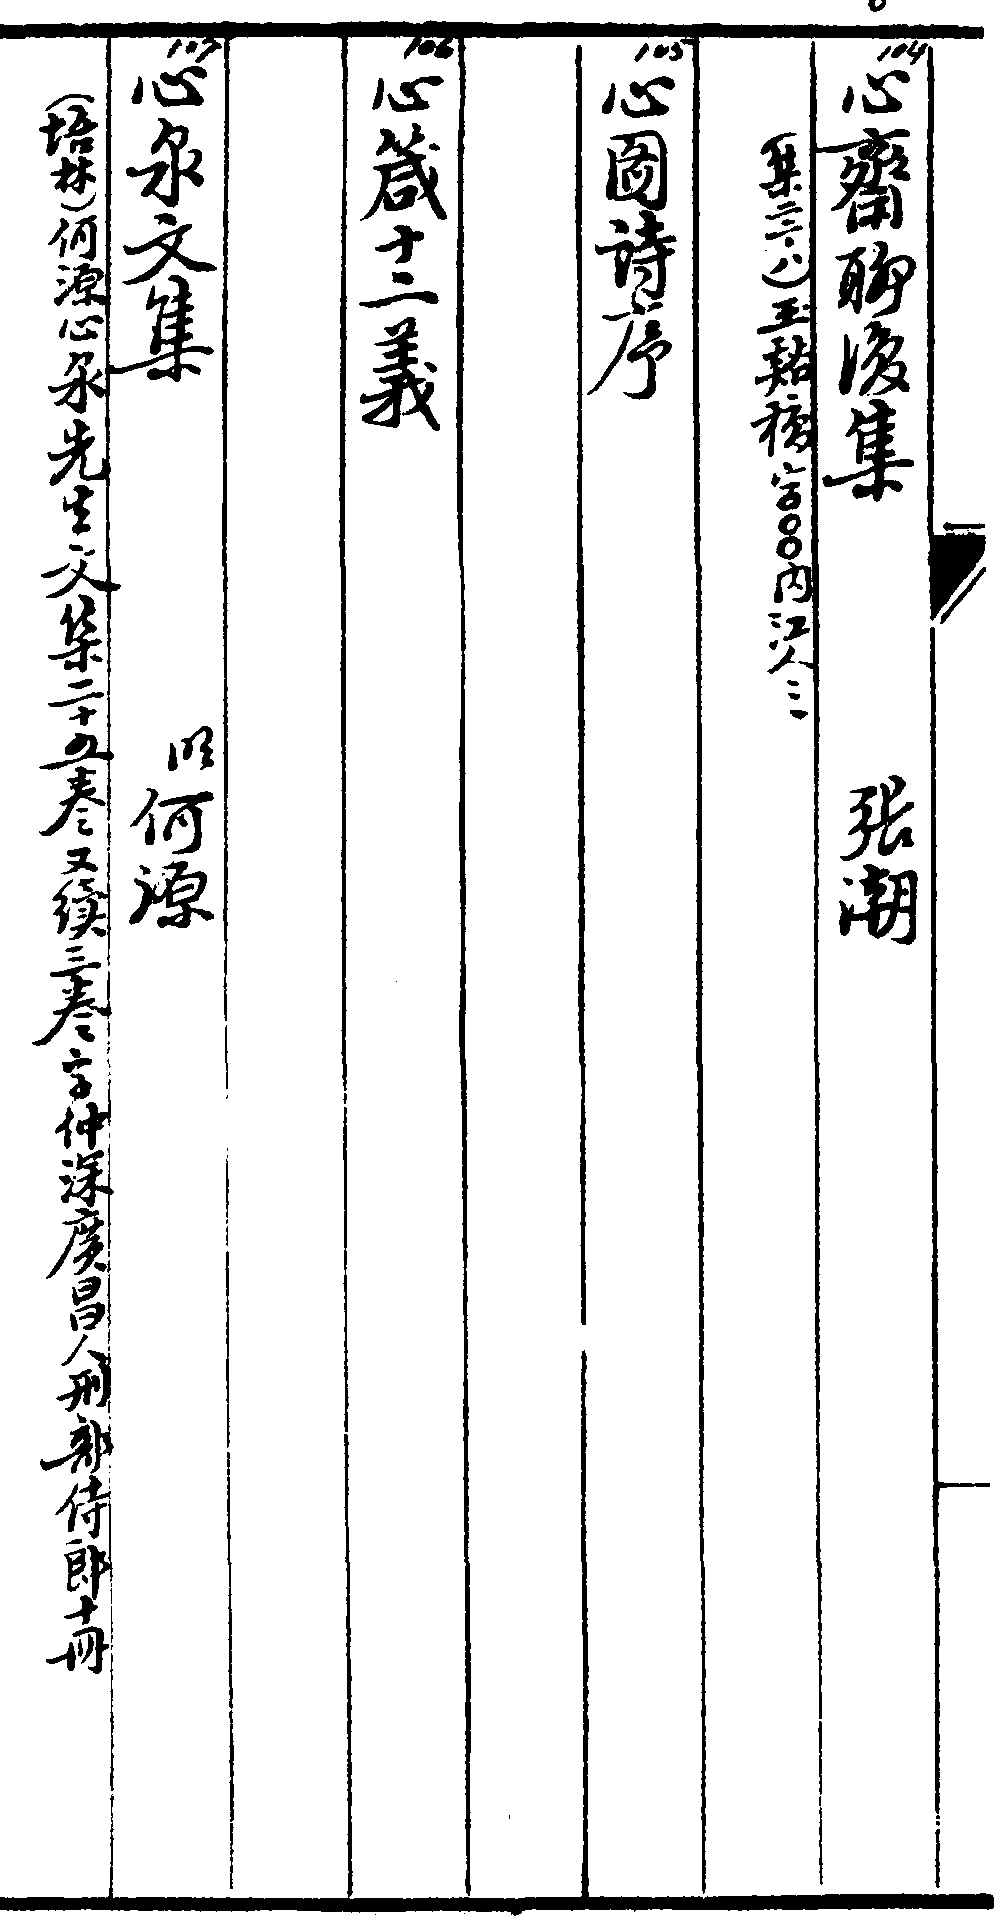 104
心齋聊復集 張潮
集二三·八）玉谿稿 字〇〇內江人 三一
105
心圖詩序
106
心箴十二義
107
心泉文集 明何源
（培林）何源心泉先生文集二十五卷又續三卷字仲深廣昌人刑部侍郎十冊